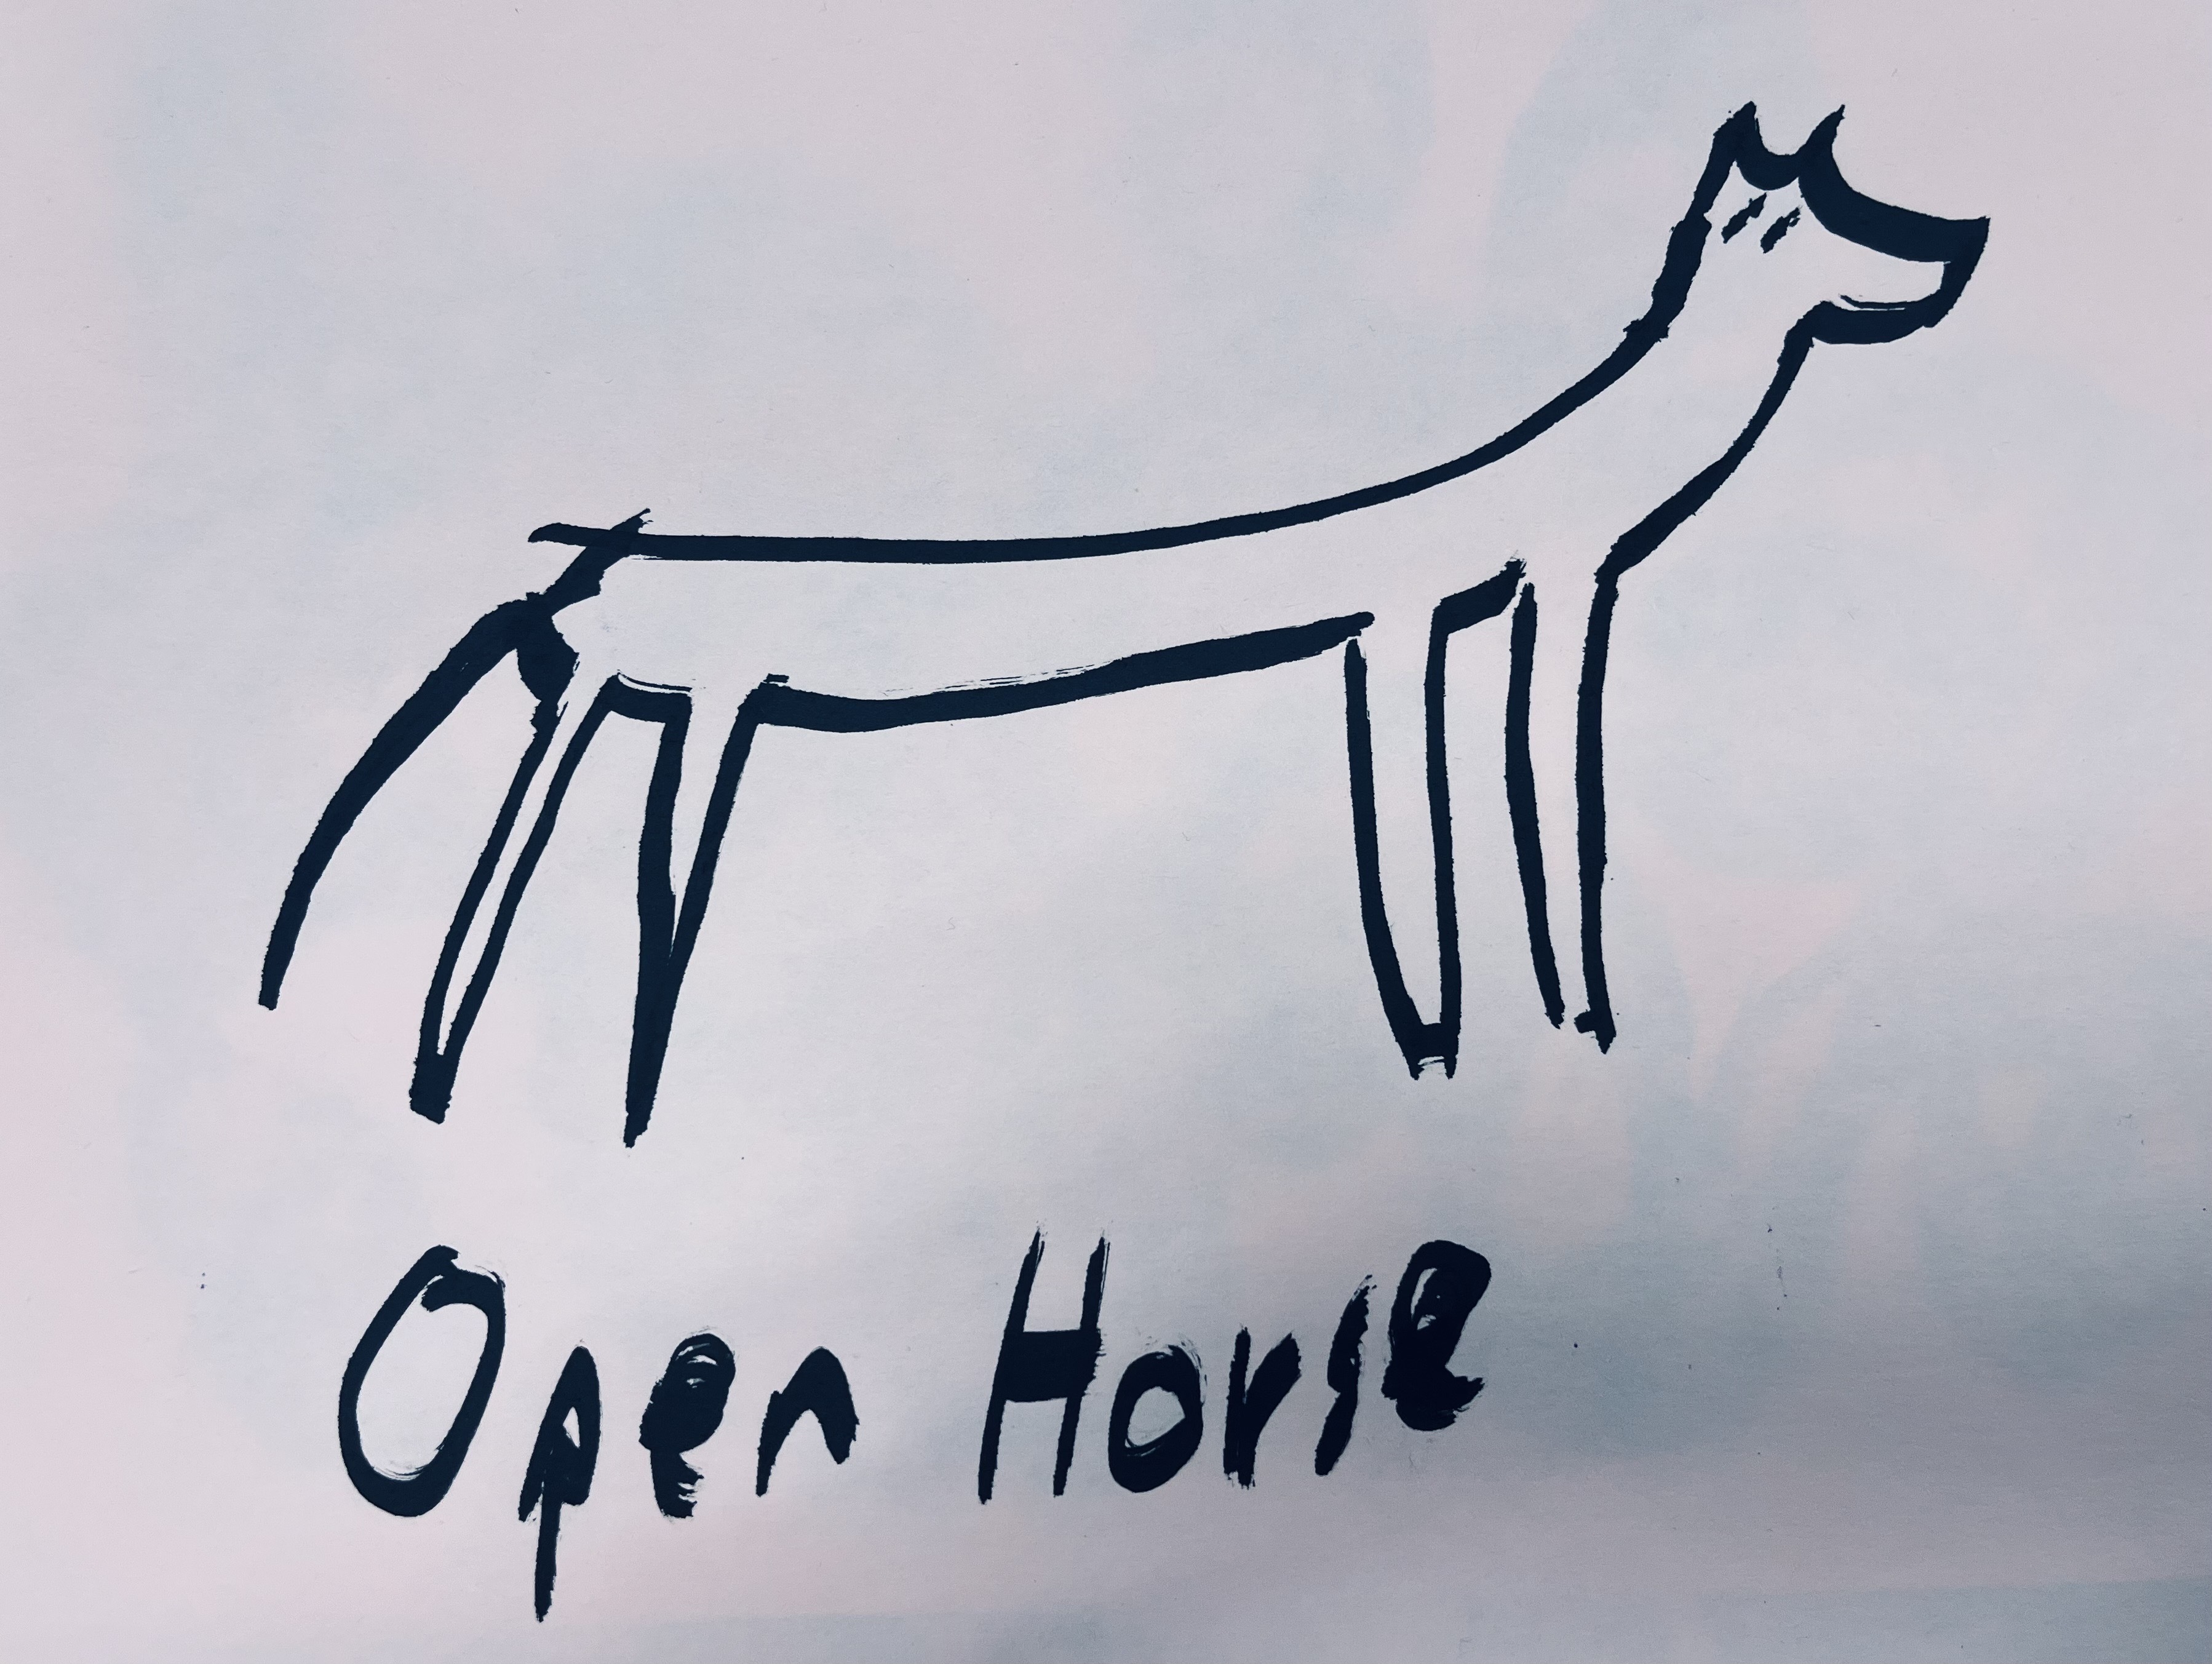 Open Horse